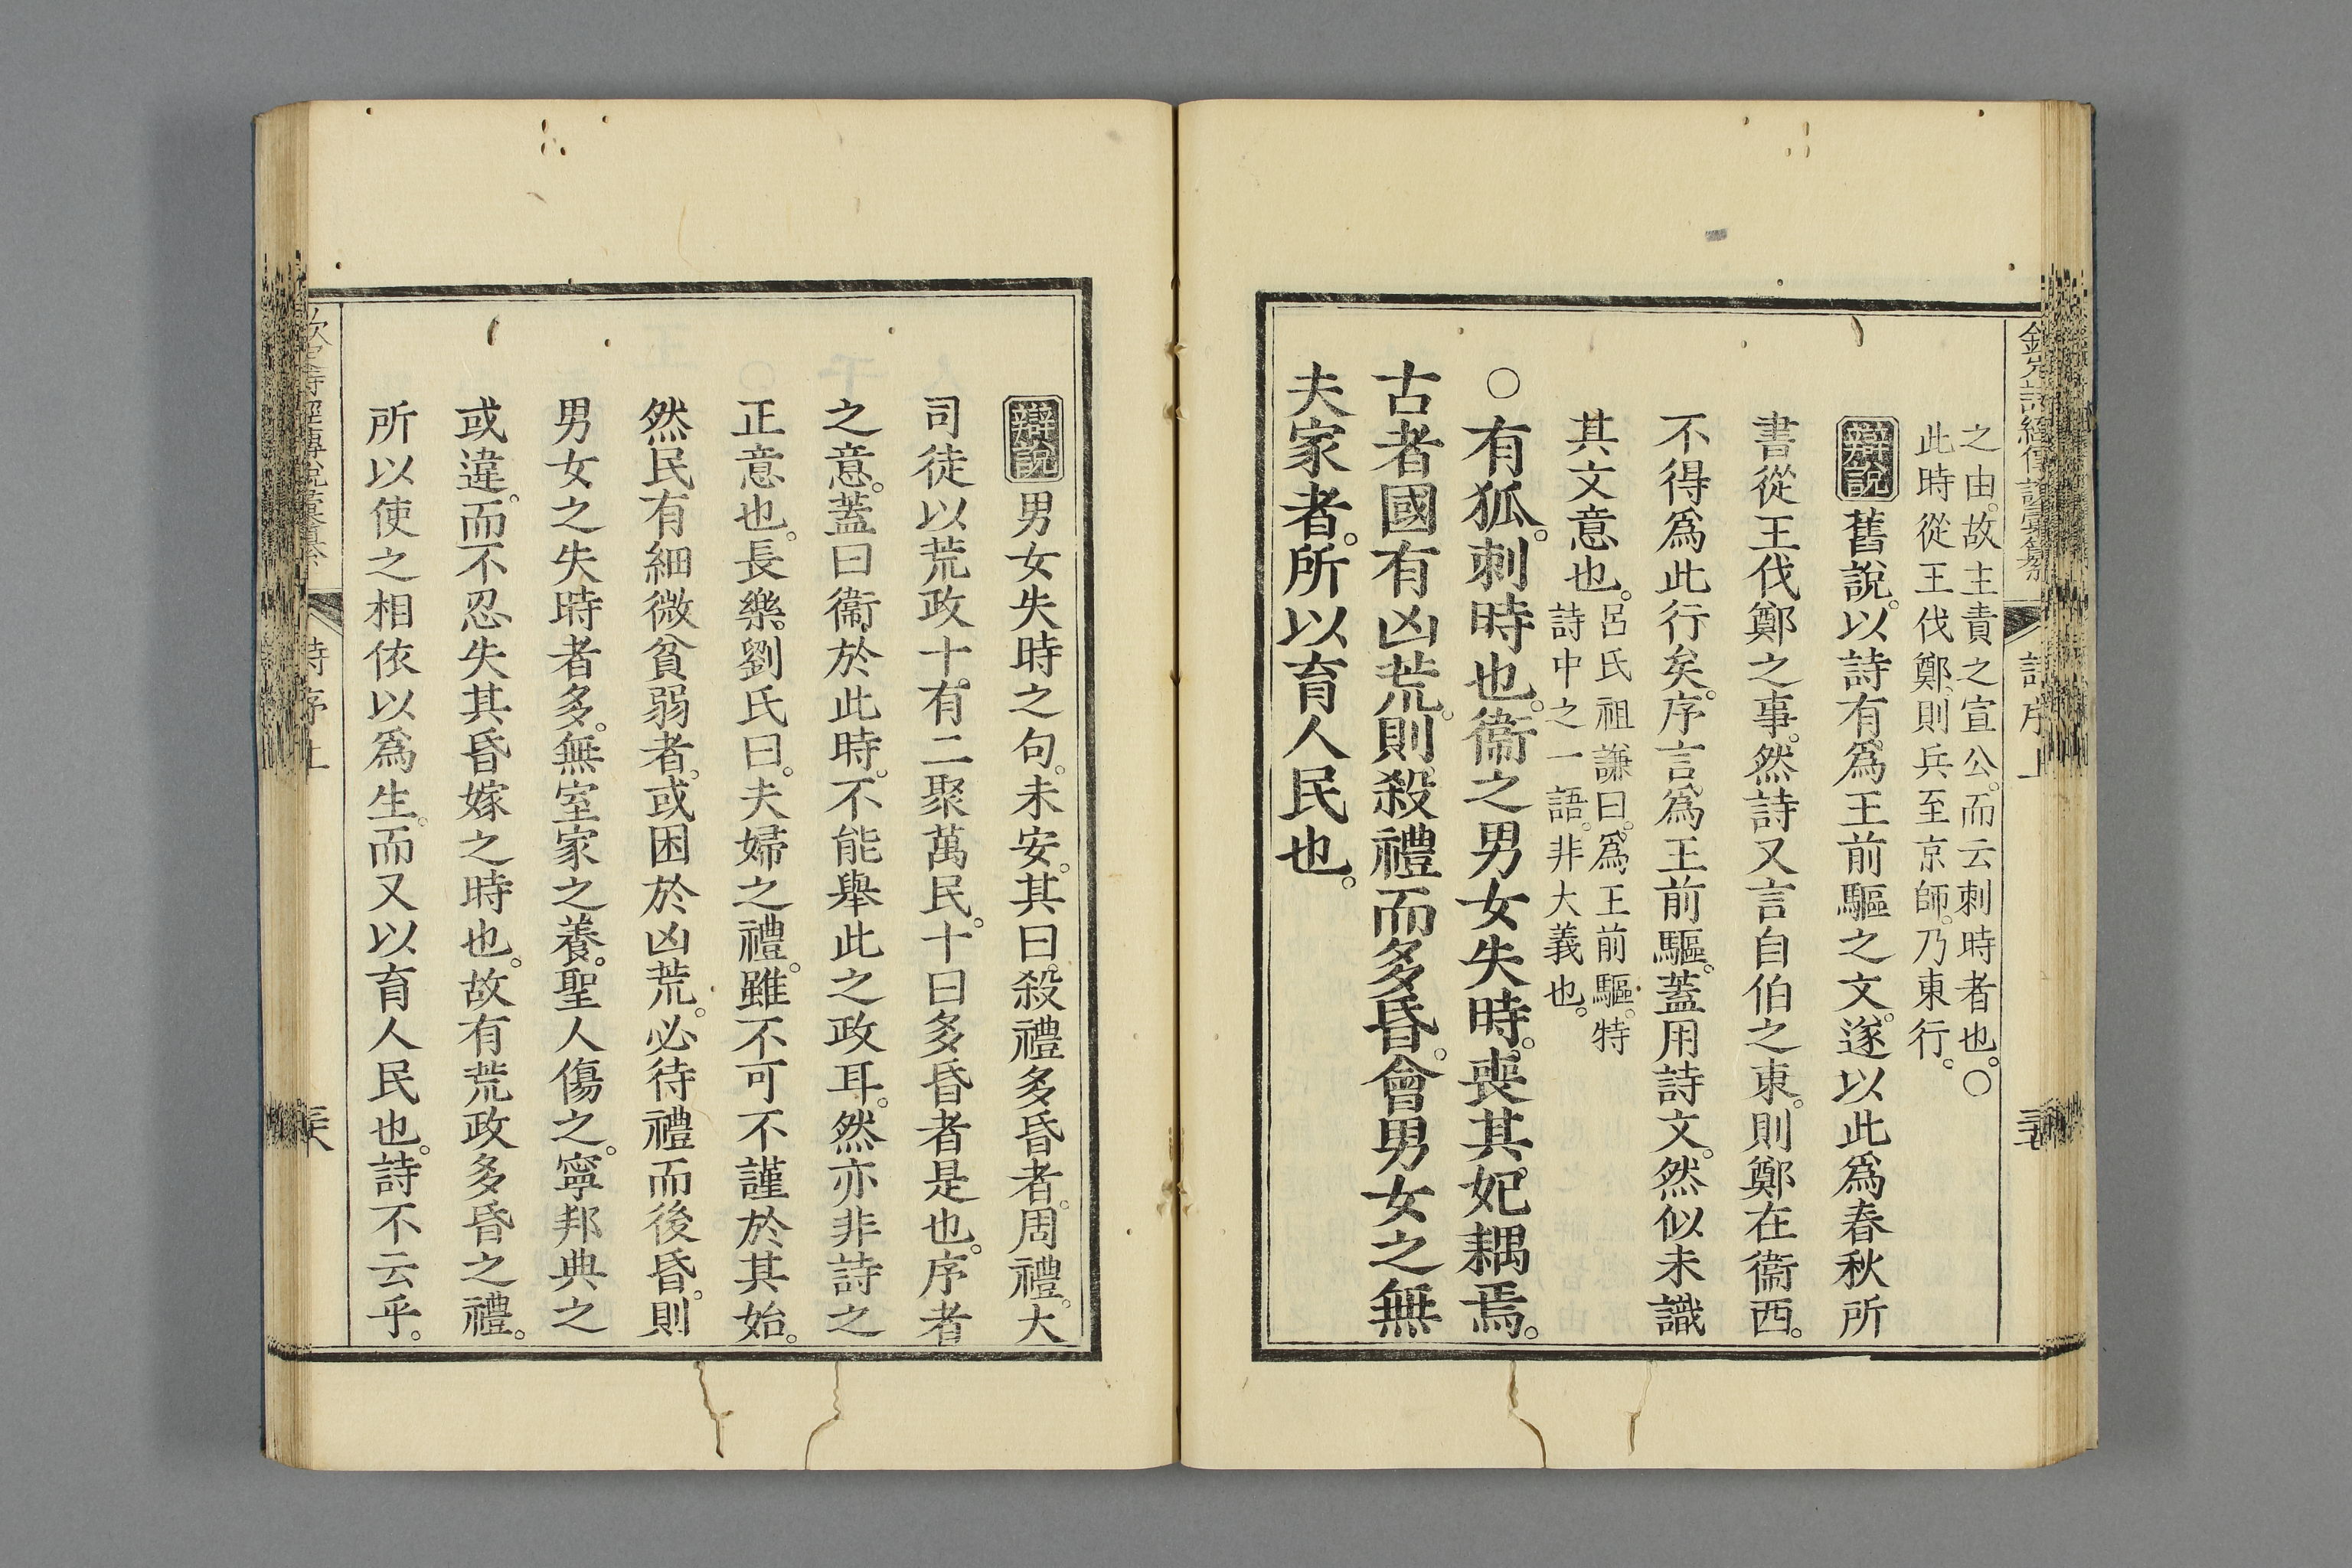 之由。故主責之宣公。而云刺時者也。○
此時從王伐鄭、則兵至京師。乃東行。
辯說 舊說。以詩有爲王前驅之文。遂以此爲春秋所
書從王伐鄭之事。然詩又言自伯之東。則鄭在衞西。
不得爲此行矣。序言爲王前驅。蓋用詩文。然似未識
其文意也。
呂氏祖謙曰。爲王前驅。特
詩中之一語。非大義也。
○有狐。刺時也。衞之男女失時。喪其妃耦焉。
古者國有凶荒。則殺禮而多昏。會男女之無
夫家者。所以育人民也。
詩序上
辯說 男女失時之句。未安。其曰。殺禮多昏者。周禮。大
司徒以荒政十有二聚萬民。十曰多昏者是也。序者
之意。蓋曰衞於此時。不能舉此之政耳。然亦非詩之
正意也。長樂劉氏曰。夫婦之禮。雖不可不謹於其始。
然民有細微貧弱者。或困於凶荒。必待禮而後昏。則
男女之失時者多。無室家之養。聖人傷之。寧邦典之
或違。而不忍失其昏嫁之時也。故有荒政多昏之禮。
所以使之相依以爲生。而又以育人民也。詩不云乎。
詩序上